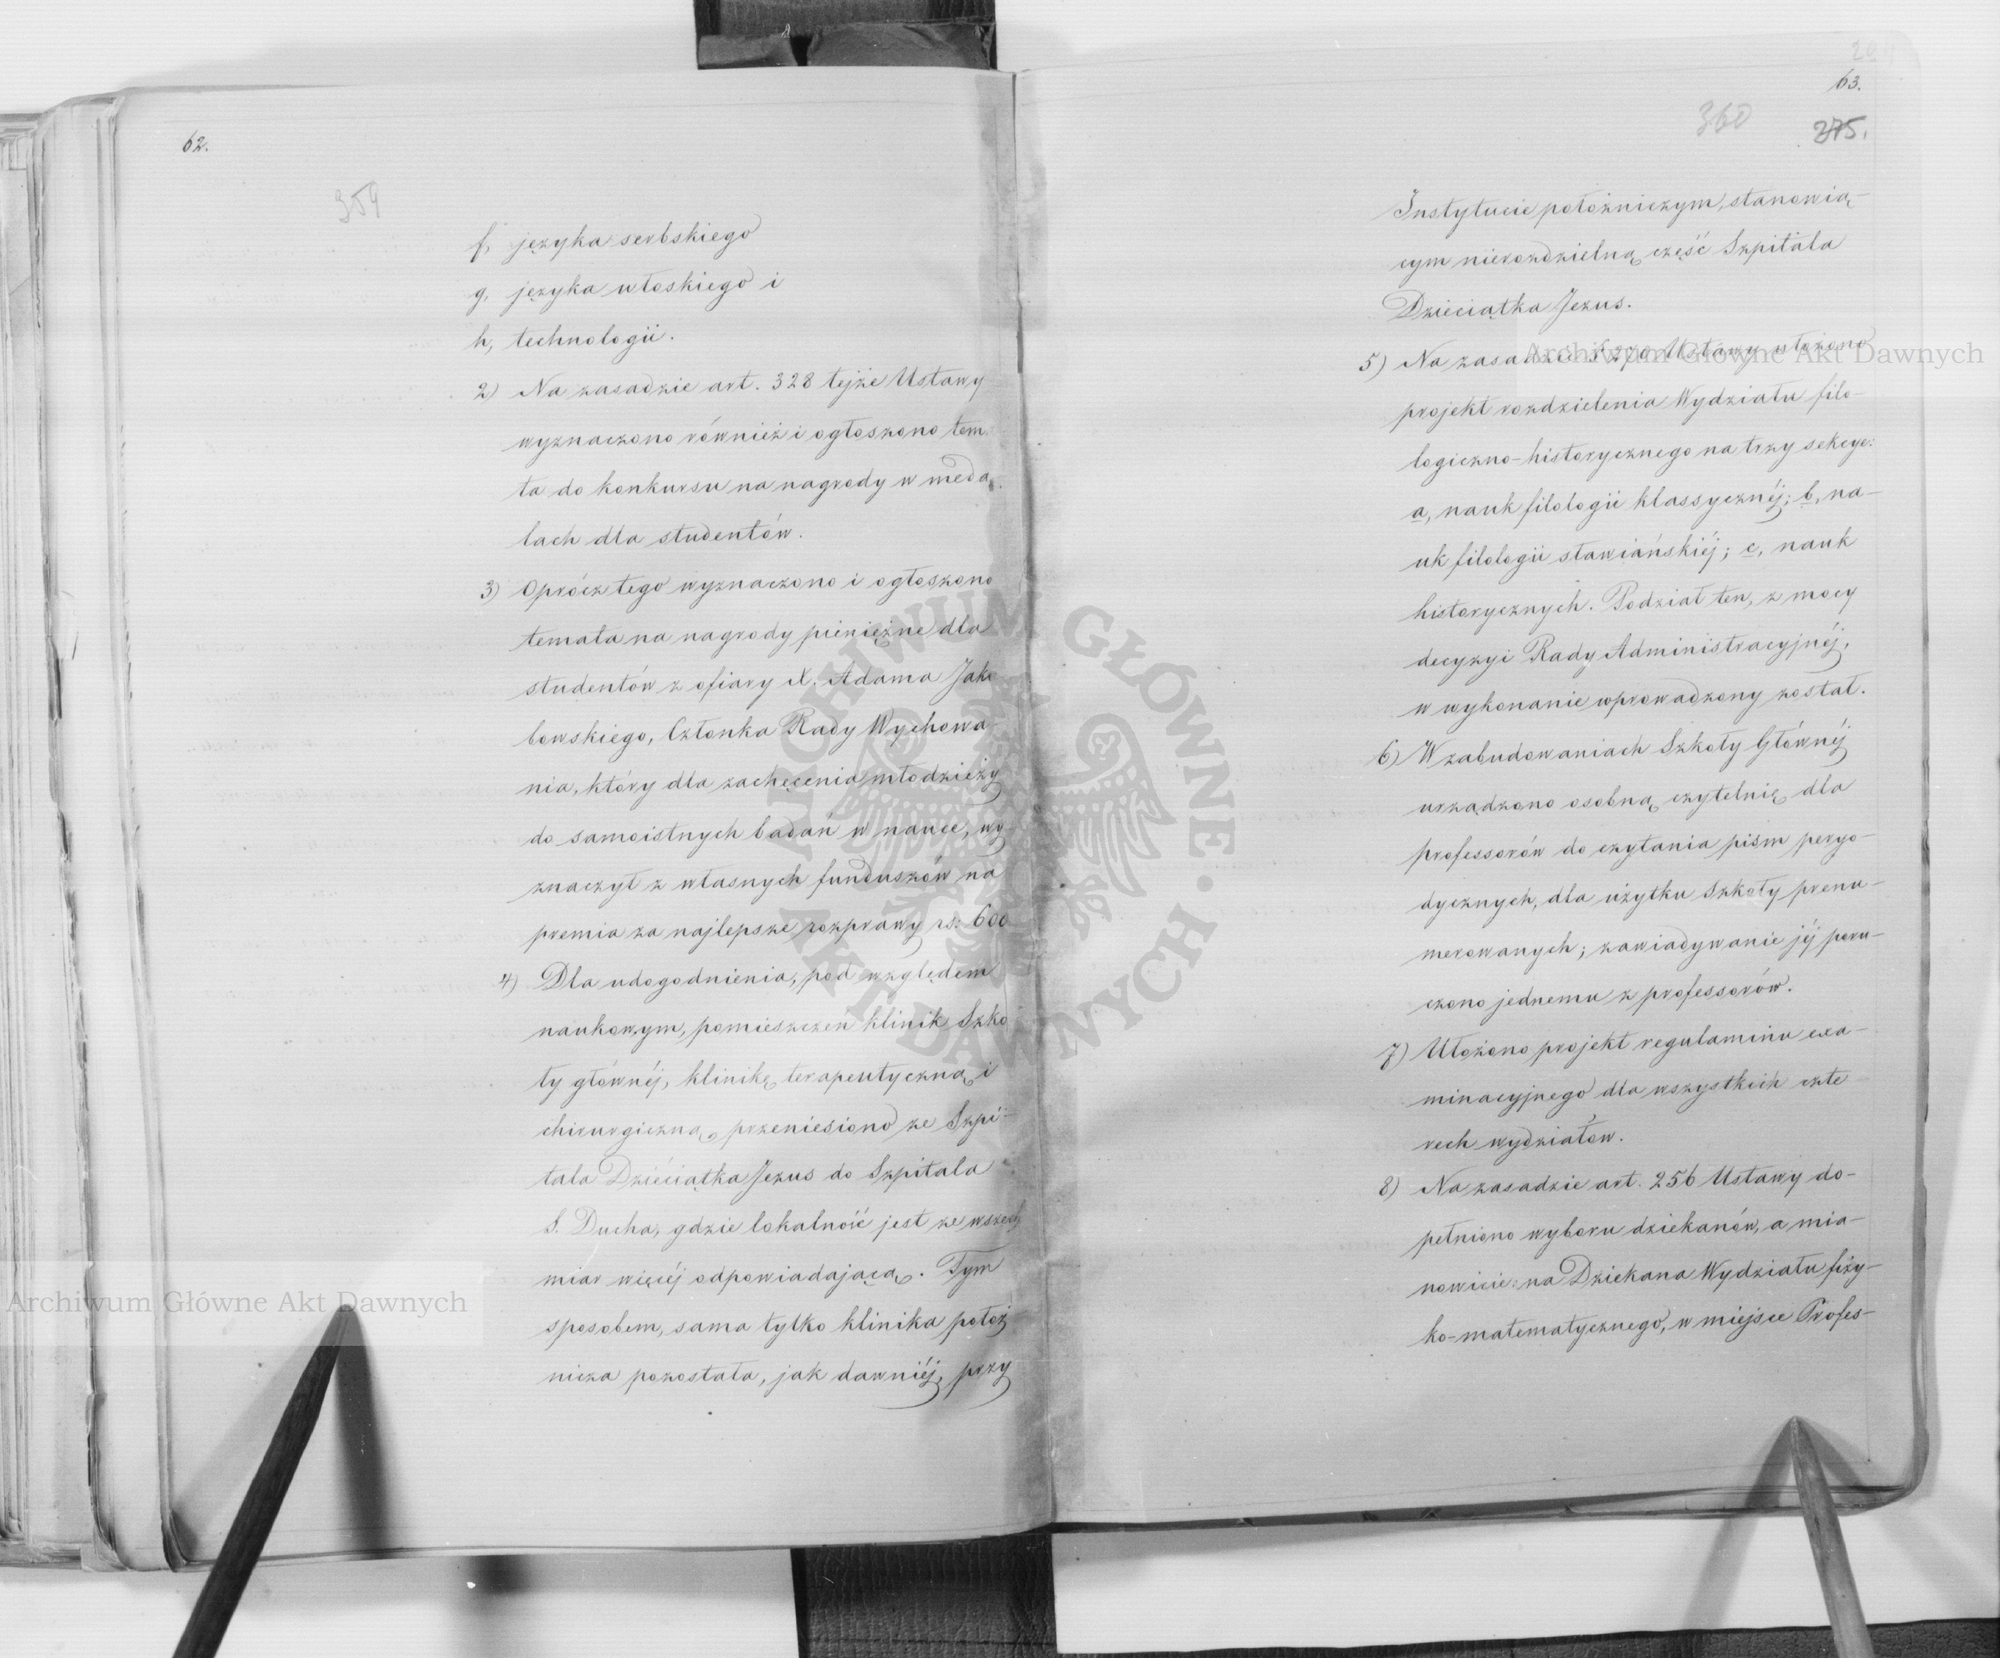 62.
359
f, języka serbskiego
g, języka włoskiego i
h, technologii.
2) Na zasadzie art. 328 tejże Ustawy
wyznaczono również i ogłoszono tem
ta do konkursu na nagrody w meda
lach dla studentów.
3) Oprócz tego wyznaczono i ogłoszono
temata na nagrody pieniężne dla
studentów z ofiary X. Adama Jako
bowskiego, Członka Rady Wychowa-
nia, który dla zachęcenia młodzieży
do samoistnych badań w nauce, wy
znaczył z własnych funduszów na
premia za najlepsze rozprawy rs: 600
4) Dla udogodnienia, pod względem
naukowym, pomieszczeń klinik Szko
ły głównéj, klinikę terapeutyczną i
chirurgiczną, przeniesiono ze Szpi-
tala Dzieciątka Jezus do Szpitala
S. Ducha, gdzie lokalność jest ze wszech
miar więcéj odpowiadającą. Tym
sposobem, sama tylko klinika położ
nicza pozostała, jak dawniéj, przy
63.
360
375.
Instytucie położniczym, stanowią-
cym nierozdzielną część Szpitala
Dzieciątka Jezus.
5) Na zasadzie Ustawy ułożono
projekt rozdzielenia Wydziału filo-
logiczno-historycznego na trzy sekcye:
a, nauk filologii klassycznéj; b, na-
uk filologii sławiańskiéj; c, nauk
historycznych. Podział ten, z mocy
decyzyi Rady Administracyjnéj,
w wykonanie wprowadzony został.
6) W zabudowaniach Szkoły Głównéj
urządzono osobną czytelnię dla
professorów do czytania pism peryo-
dycznych, dla użytku Szkoły prenu-
merowanych; zawiadywanie jéj poru-
czono jednemu z professorów.
7) Ułożono projekt regulaminu exa-
minacyjnego dla wszystkich czte-
rech wydziałów.
8) Na zasadzie art. 256 Ustawy do-
pełniono wyboru dziekanów, a mia-
nowicie: na Dziekana Wydziału fizy-
ko-matematycznego, w miejsce Profes-
Archiwum Główne Akt Dawnych
Archiwum Główne Akt Dawnych
ARCHIWUM GŁÓWNE · AKT DAWNYCH ·